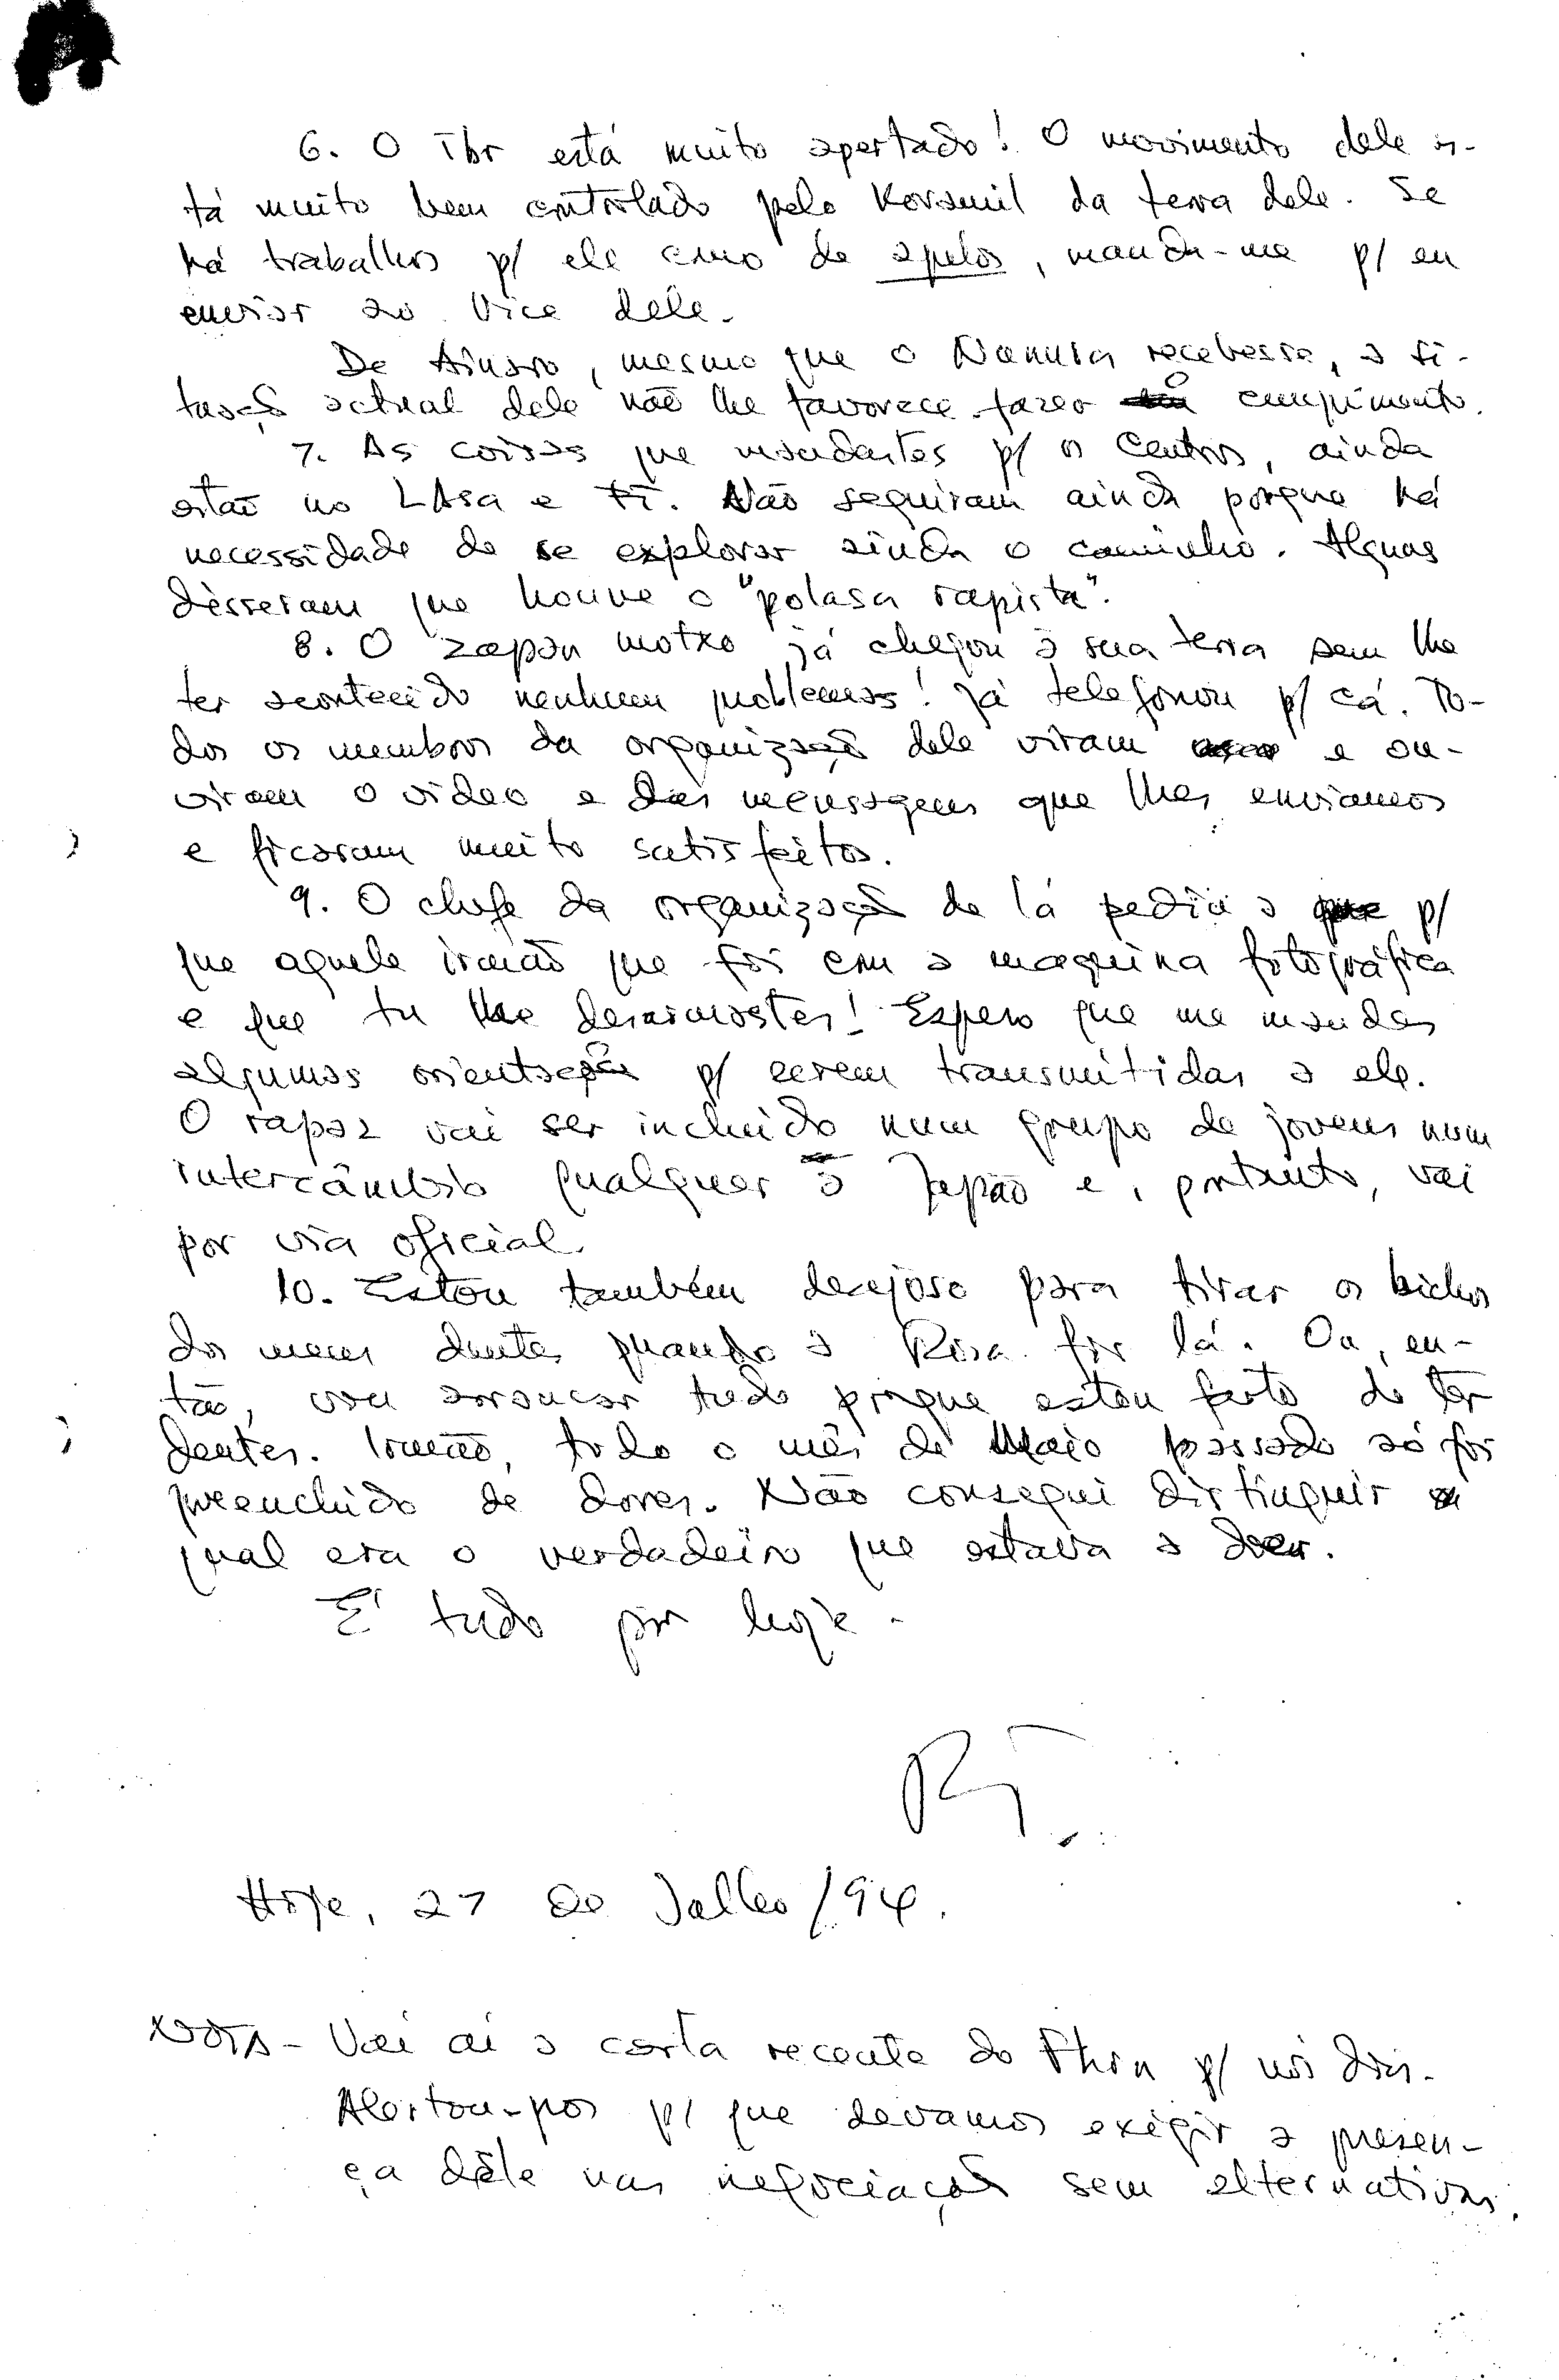 6. O Ibr está muito apertado! O movimento dele es-
tá muito bem controlado pelo Koramil da terra dele. Se
há trabalhos p/ ele como de apelos, manda-me p/ eu
enviar ao Vice dele.
De Ainaro, mesmo que o recebesse, a si-
tuação actual dele não lhe favorece fazer o cumprimento.
7. As coisas que mandastes p/ os Centros, ainda
estão no LAsa e FI. Não seguiram ainda porque há
necessidade de se explorar ainda o caminho. Alguns
disseram que houve o "polasa rapista".
8. O zapon motxo já chegou à sua terra sem lhe
ter acontecido nenhum problemas! Já telefonou p/ cá. To-
dos os membros da organização dele viram e ou-
viram o video e das mensagens que lhes enviamos
e ficaram muito satisfeitos.
9. O chefe da organização de lá pediu a que p/
que aquele irmão que foi com a maquina fotográfica
e que tu lhe Espero que me mandes
algumas orientações p/ serem transmitidas a ele.
O rapaz vai ser incluido num grupo de jovens num
intercâmbio qualquer à Japão e, portanto, vai
por via oficial.
10. Estou também desejoso para tirar os bichos
dos meus dentes quando a Rosa for lá. Ou, en-
tão, vou arrancar tudo porque estou farto de ter
dentes. Irmão, todo o mês de Maio passado só foi
preenchido de dores. Não consegui distinguir
qual era o verdadeiro que estava a doer.
É tudo por hoje.
Hoje, 27 de Julho/94.
NOTA - Vai aí a carta recente do p/ nós dois.
Alertou-nos p/ que devamos exigir a presen-
ça dele nas negociações sem alternativas.